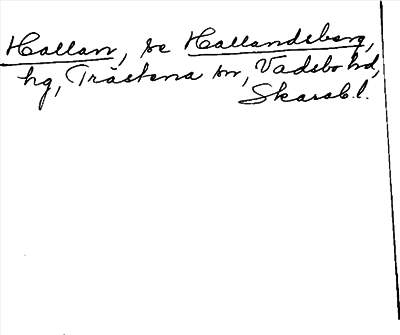 Hallan, se Hallandsberg,
hg, Trästena sn, Vadsbo hd,
Skarab.l.